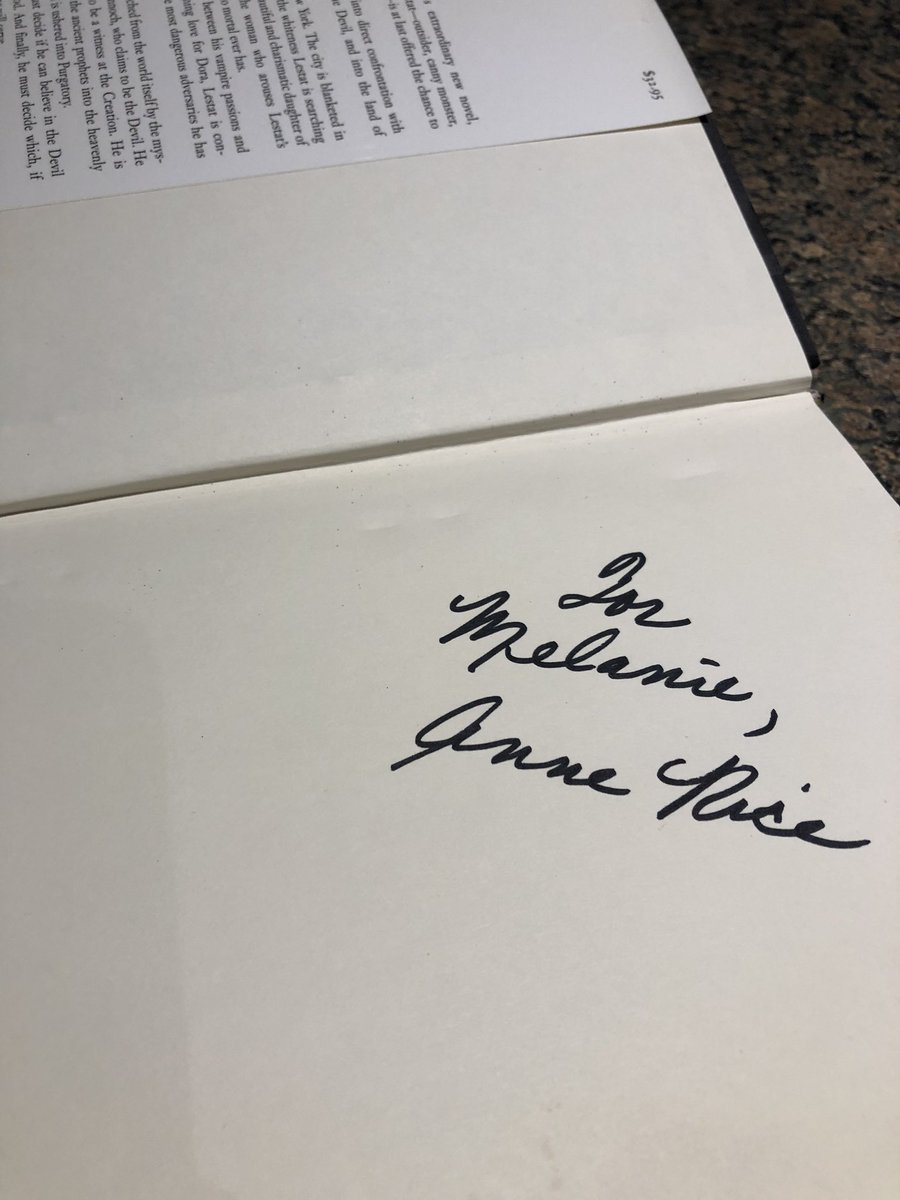 $32.95
extraordinary new novel,
outsider, canny monster,
is at last offered the chance to
into direct confrontation with
Devil, and into the land of
York. The city is blanketed in
the whiteness Lestat is searching
and charismatic daughter of
woman who arouses Lestat's
mortal ever has.
between his vampire passions and
love for Dora, Lestat is con-
most dangerous adversaries he has
from the world itself by the mys-
who claims to be the Devil. He
be a witness at the Creation. He is
the ancient prophets into the heavenly
is ushered into Purgatory.
decide if he can believe in the Devil
And finally, he must decide which, if
For
Melanie,
Anne Rice